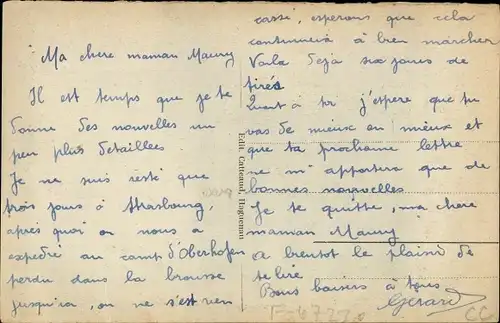 Ma chere maman Maury
Il est temps que je te
donne des nouvelles un
peu plus detaillees
Je ne suis resté que
trois jours à Strasbourg,
après quoi on nous a
expedié au camp d'Oberhofen
perdu dans la brousse
jusqu'ici, on ne s'est rien
Edit. Catteaud, Haguenau
cassé, esperons que cela
continuera à bien marcher
Voila deja six jours de
tirés
Quant à toi j'espère que tu
vas de mieux en mieux et
que ta prochaine lettre
ne m'apportera que de
bonnes nouvelles
Je te quitte, ma chere
maman Maury
a bientot le plaisir de
te lire
Bons baisers à tous
Gérard
CC